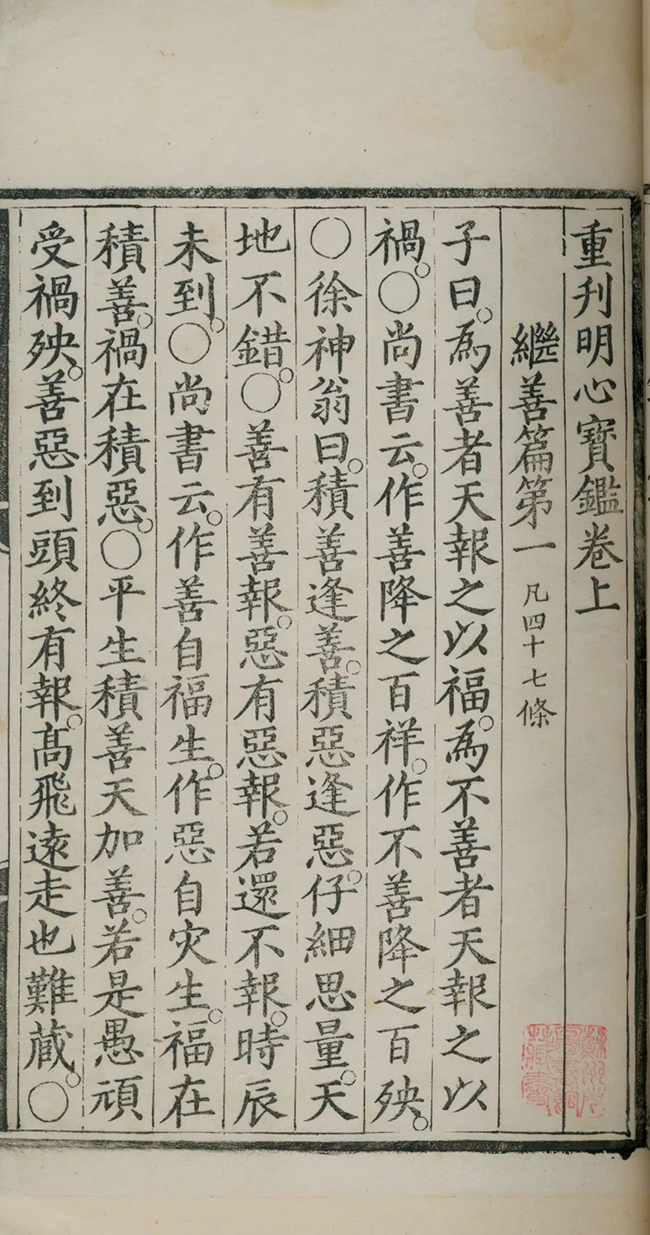 重刋明心寶鑑卷上
繼善篇第一 凡四十七條
子曰。爲善者天報之以福。爲不善者天報之以
禍。〇尚書云。作善降之百祥。作不善降之百殃。
〇徐神翁曰。積善逢善。積惡逢惡。仔細思量。天
地不錯。〇善有善報。惡有惡報。若還不報。時辰
未到。〇尚書云。作善自福生。作惡自灾生。福在
積善。禍在積惡。〇平生積善天加善。若是愚頑
受禍殃。善惡到頭終有報。髙飛遠走也難藏。〇